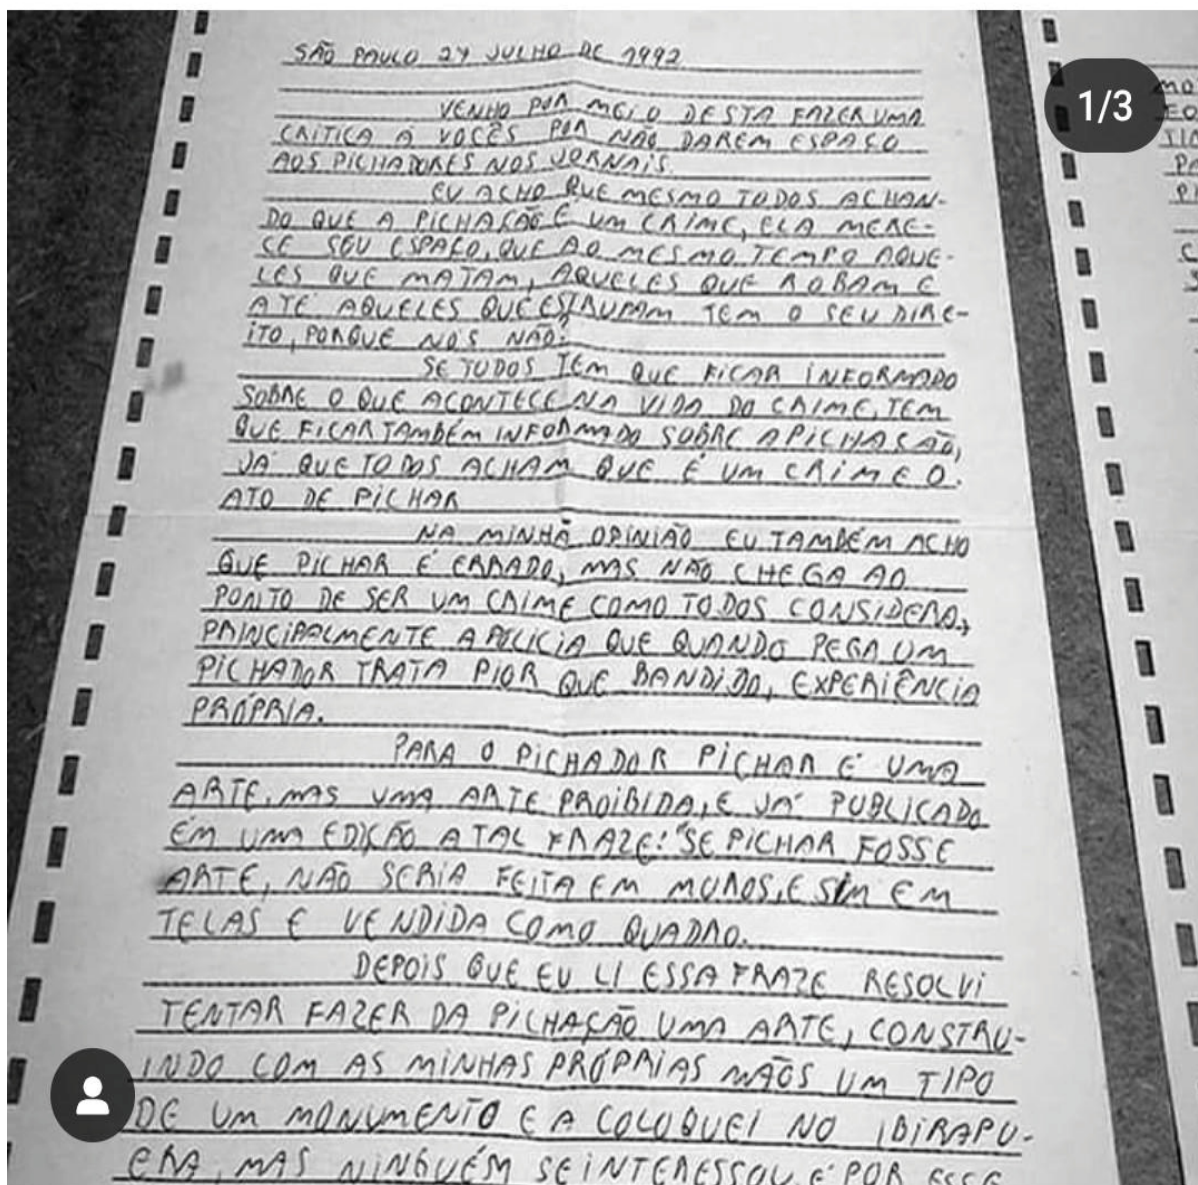 SÃO PAULO 27 JULHO DE 1992
VENHO POR MEIO DESTA FAZER UMA
CRÍTICA A VOCÊS POR NÃO DAREM ESPAÇO
AOS PICHADORES NOS JORNAIS.
EU ACHO QUE MESMO TODOS ACHAN-
DO QUE A PICHAÇÃO É UM CRIME, ELA MERE-
CE SEU ESPAÇO, QUE AO MESMO TEMPO AQUE-
LES QUE MATAM, AQUELES QUE ROBAM E
ATÉ AQUELES QUE ESTRUPAM TEM O SEU DIRE-
ITO, PORQUE NÓS NÃO?
SE TODOS TEM QUE FICAR INFORMADO
SOBRE O QUE ACONTECE NA VIDA DO CRIME, TEM
QUE FICAR TAMBÉM INFORMADO SOBRE A PICHAÇÃO,
JÁ QUE TODOS ACHAM QUE É UM CRIME O
ATO DE PICHAR
NA MINHA OPINIÃO EU TAMBÉM ACHO
QUE PICHAR É ERRADO, MAS NÃO CHEGA AO
PONTO DE SER UM CRIME COMO TODOS CONSIDERA,
PRINCIPALMENTE A POLICIA QUE QUANDO PEGA UM
PICHADOR TRATA PIOR QUE BANDIDO, EXPERIÊNCIA
PRÓPRIA.
PARA O PICHADOR PICHAR É UMA
ARTE, MAS UMA ARTE PROIBIDA, E JÁ PUBLICADO
EM UMA EDIÇÃO A TAL FRAZE: "SE PICHAR FOSSE
ARTE, NÃO SERIA FEITA EM MUROS, E SIM EM
TELAS E VENDIDA COMO QUADRO.
DEPOIS QUE EU LI ESSA FRAZE RESOLVI
TENTAR FAZER DA PICHAÇÃO UMA ARTE, CONSTRU-
INDO COM AS MINHAS PRÓPRIAS MÃOS UM TIPO
DE UM MONUMENTO E A COLOQUEI NO IBIRAPU-
ERA, MAS NINGUÉM SE INTERESSOU, E POR ESSE
1/3